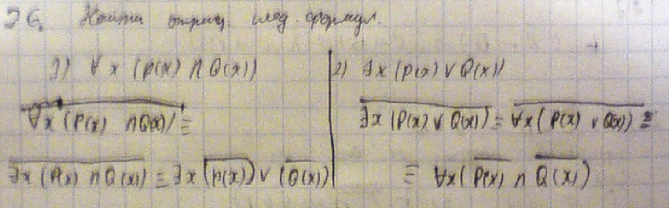 Э6. Найти отриц. след. формул.
1) ∀x (P(x) ∩ Q(x))
\overline{∀x (P(x) ∩ Q(x))} ≡
∃x \overline{(P(x) ∩ Q(x))} ≡ ∃x (\overline{P(x)}) ∨ (\overline{Q(x)})
2) ∃x (P(x) ∨ Q(x))
\overline{∃x (P(x) ∨ Q(x))} ≡ \overline{∀x (P(x) ∨ Q(x))} ≡
≡ ∀x (\overline{P(x)} ∩ \overline{Q(x)})